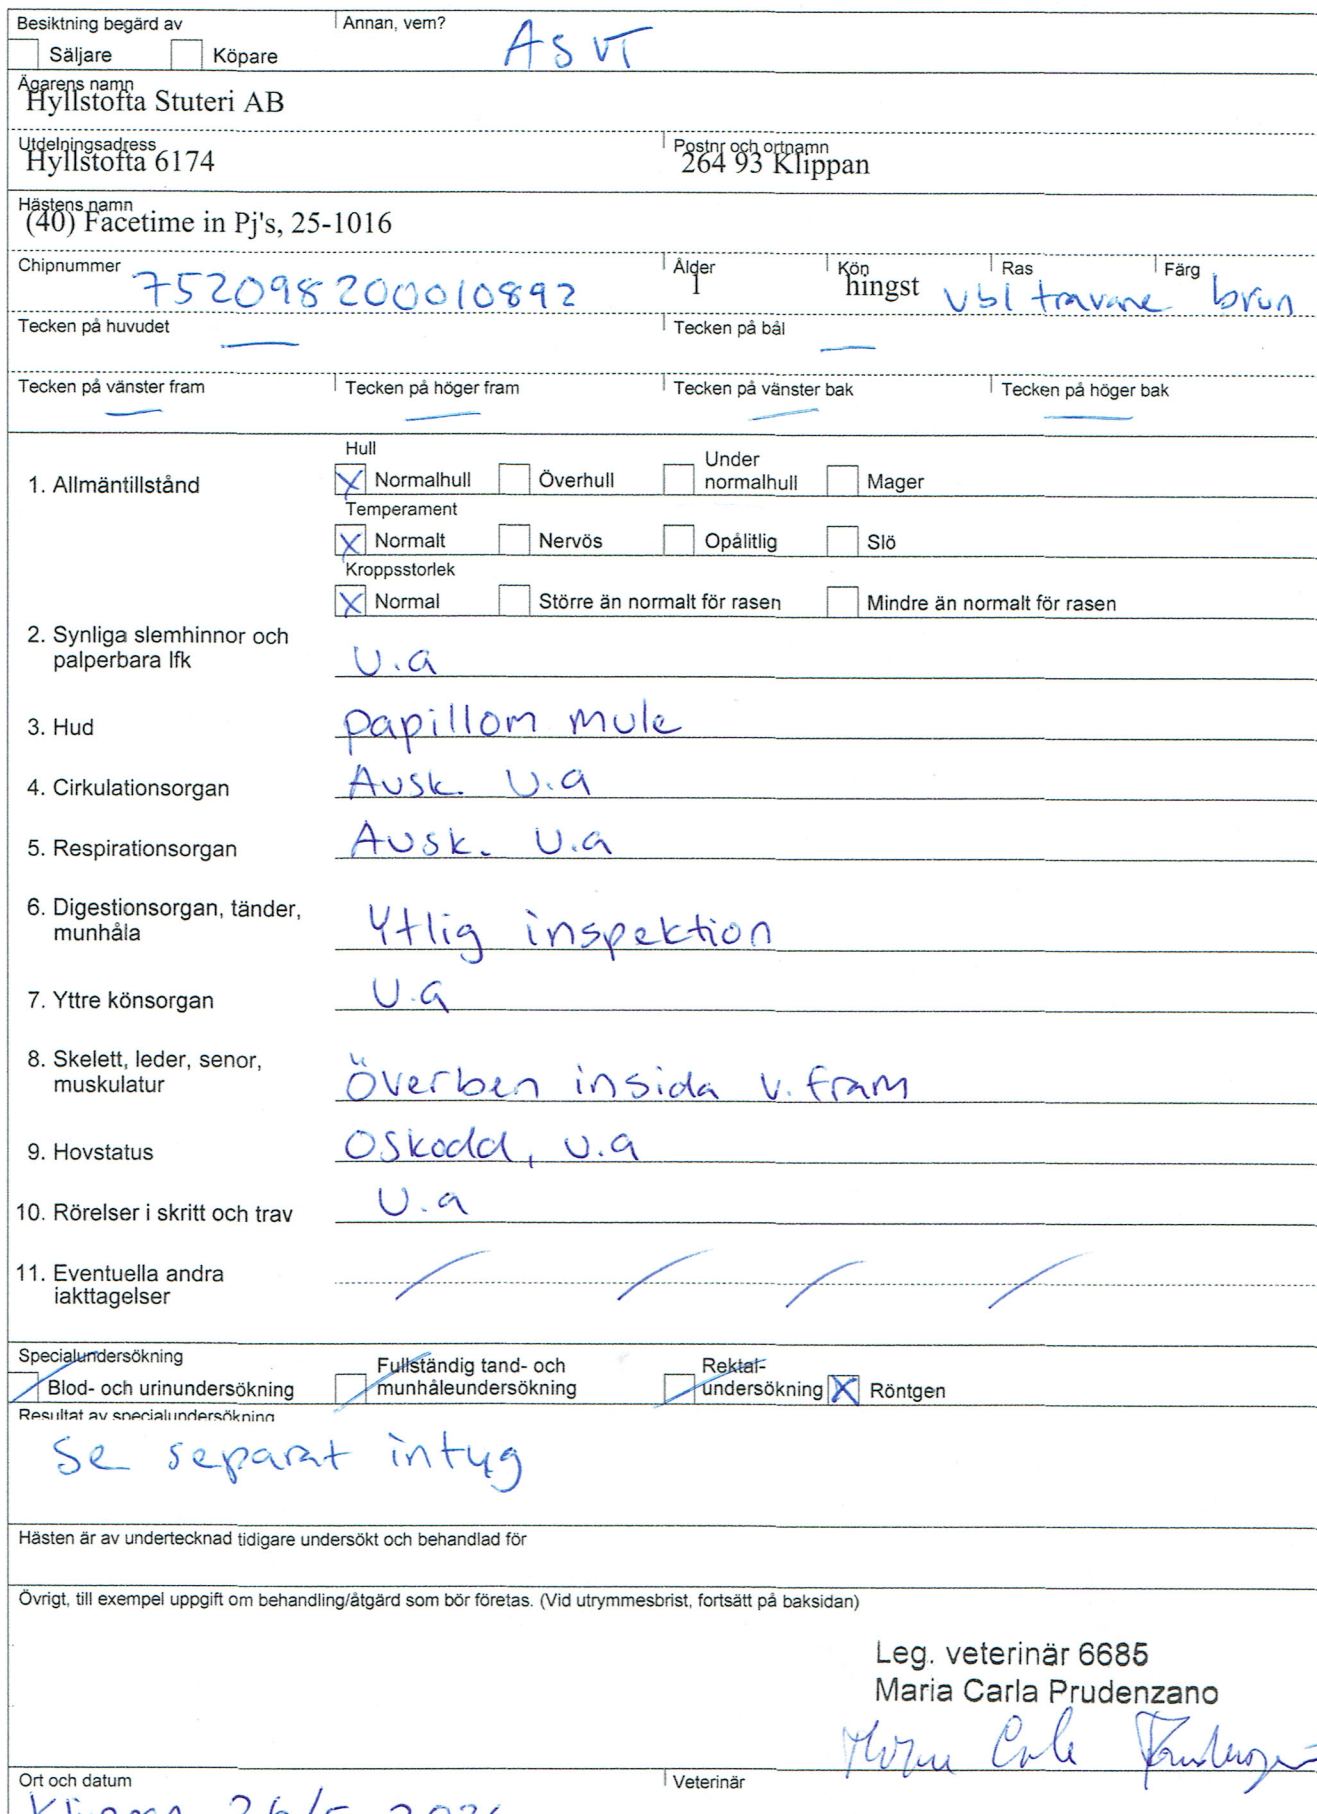 Besiktning begärd av
Annan, vem?
Säljare Köpare
ASVT
Ägarens namn
Hyllstofta Stuteri AB
Utdelningsadress
Hyllstofta 6174
Postnr och ortnamn
264 93 Klippan
Hästens namn
(40) Facetime in Pj's, 25-1016
Chipnummer
752098200010892
Ålder
1
Kön
hingst
Ras
vbl travare
Färg
brun
Tecken på huvudet
Tecken på bål
Tecken på vänster fram
Tecken på höger fram
Tecken på vänster bak
Tecken på höger bak
1. Allmäntillstånd
Hull
X Normalhull Överhull Under normalhull Mager
Temperament
X Normalt Nervös Opålitlig Slö
Kroppsstorlek
X Normal Större än normalt för rasen Mindre än normalt för rasen
2. Synliga slemhinnor och
palperbara lfk
U.a
3. Hud
papillom mule
4. Cirkulationsorgan
Ausk. U.a
5. Respirationsorgan
Ausk. U.a
6. Digestionsorgan, tänder,
munhåla
Ytlig inspektion
7. Yttre könsorgan
U.a
8. Skelett, leder, senor,
muskulatur
Överben insida v. fram
9. Hovstatus
Oskodd, u.a
10. Rörelser i skritt och trav
U.a
11. Eventuella andra
iakttagelser
Specialundersökning
Blod- och urinundersökning
Fullständig tand- och
munhåleundersökning
Rektal-
undersökning
X Röntgen
Resultat av specialundersökning
Se separat intyg
Hästen är av undertecknad tidigare undersökt och behandlad för
Övrigt, till exempel uppgift om behandling/åtgärd som bör företas. (Vid utrymmesbrist, fortsätt på baksidan)
Leg. veterinär 6685
Maria Carla Prudenzano
Ort och datum
Veterinär
Klippan 26/5